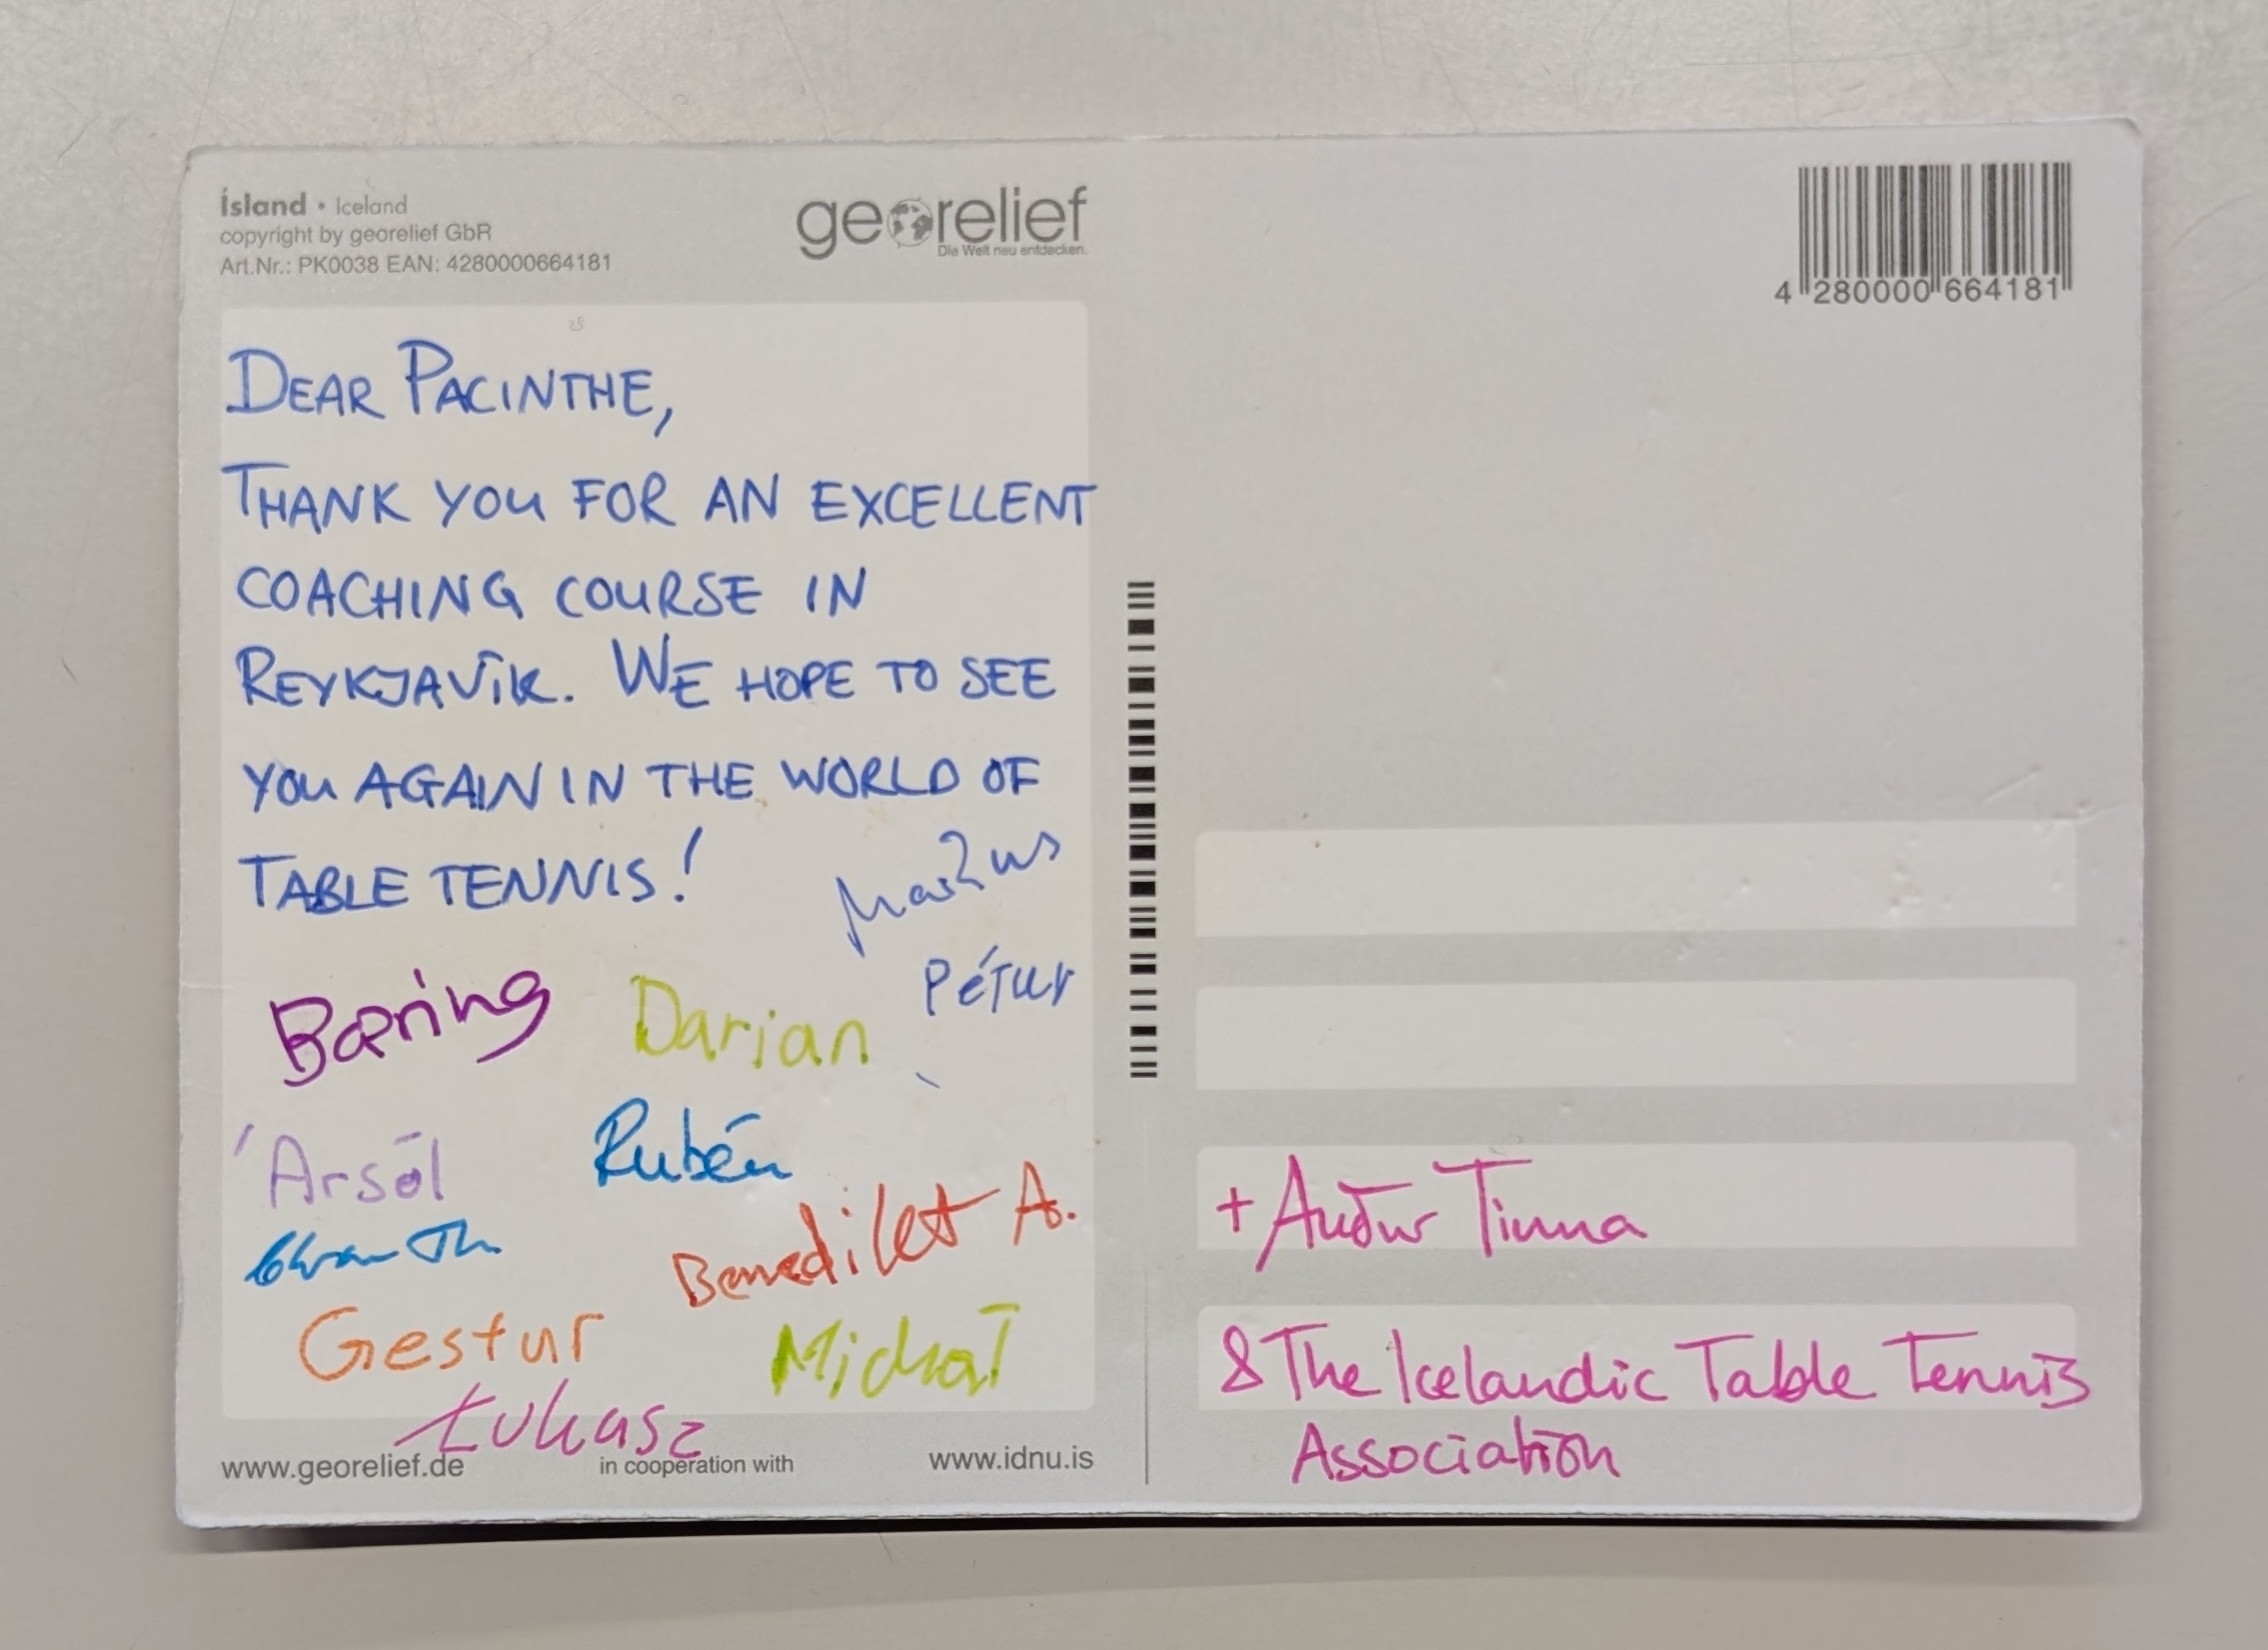 Ísland • Iceland
copyright by georelief GbR
Art.Nr.: PK0038 EAN: 4280000664181
georelief
Die Welt neu entdecken.
DEAR PACINTHE,
THANK YOU FOR AN EXCELLENT
COACHING COURSE IN
REYKJAVÍK. WE HOPE TO SEE
YOU AGAIN IN THE WORLD OF
TABLE TENNIS!
Pétur
Bæring
Darian
Ársól
Rubén
Benedikt A.
Gestur
Michał
Łukasz
www.georelief.de
in cooperation with
www.idnu.is
4 280000 664181
+ Auður Tinna
& The Icelandic Table Tennis
Association